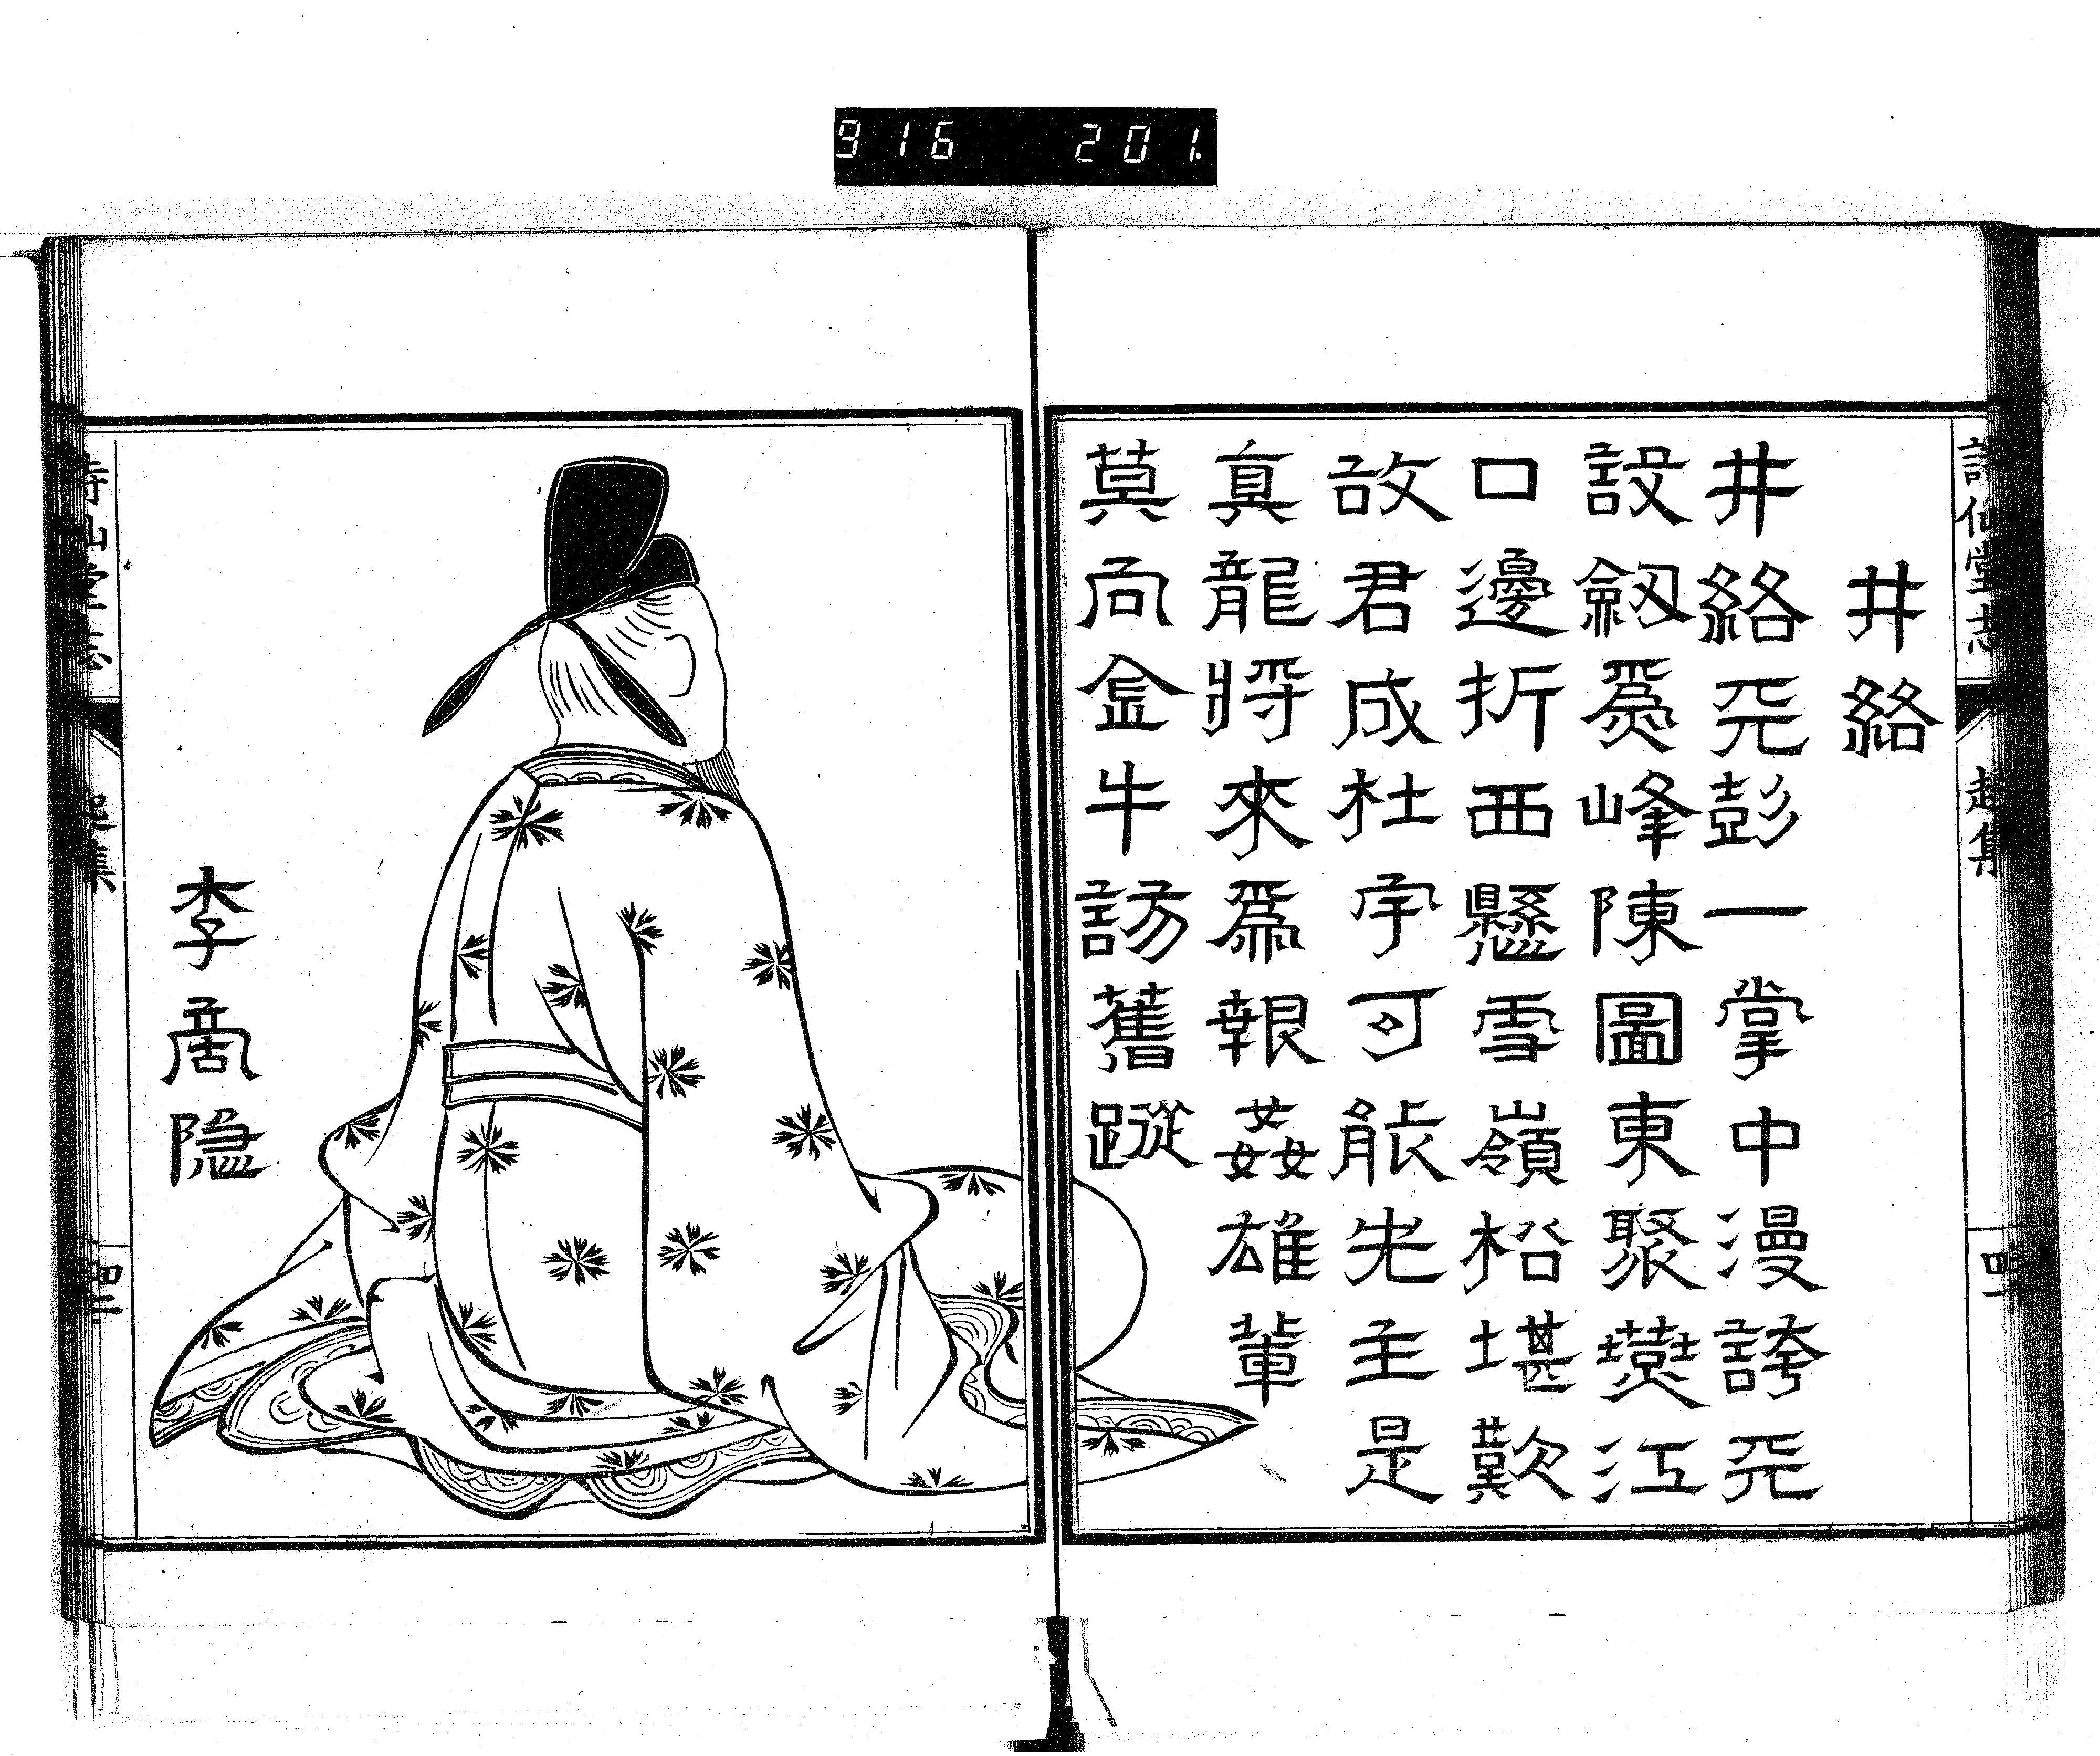 916 201.
詩仙堂志
井絡
井絡天彭一掌中漫誇天
設劔爲峰陳圖東聚燕江
口邊折西懸雪嶺松堪歎
故君成杜宇可能先主是
真龍將來爲報姦雄輩
莫向金牛訪舊蹤
李商隠
詩仙堂志